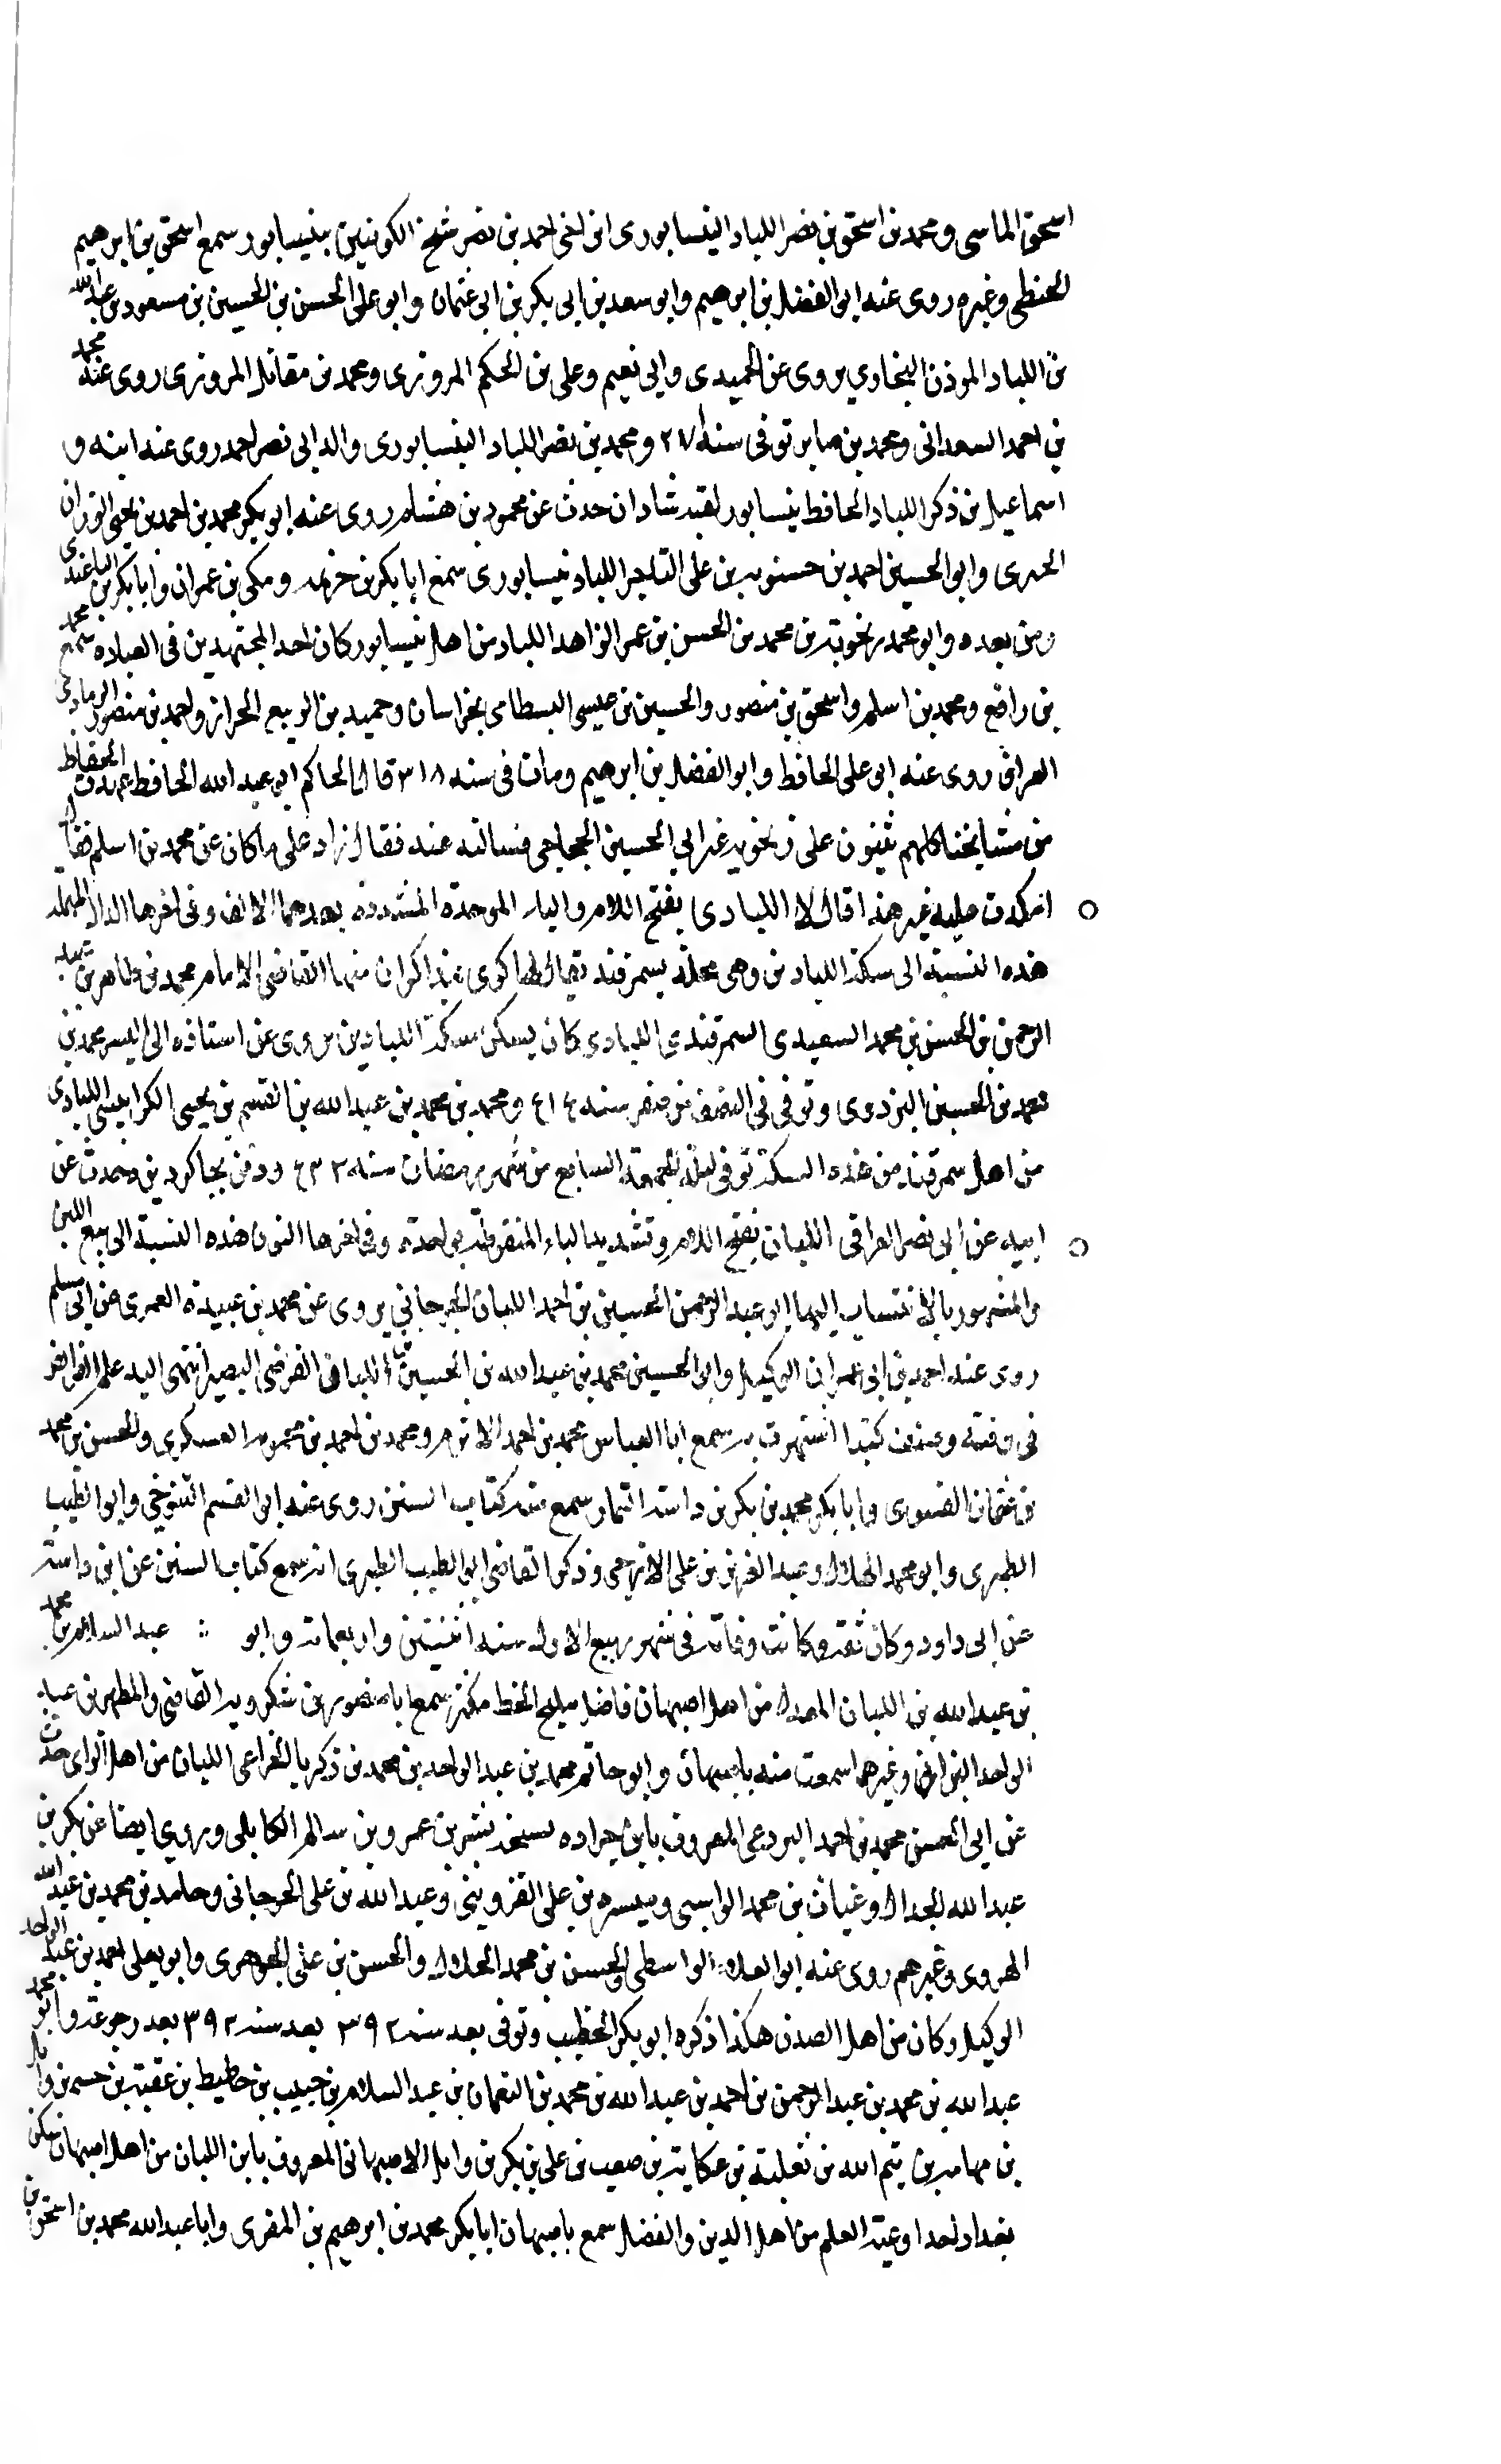 اسحق الماسى ومحمد بن اسحق بن نصر اللباد النيسابورى ابن اخى احمد بن نصر شيخ الكوفيين بنيسابور سمع اسحق بن ابرهيم
الحنظلى وغيره روى عنه ابو الفضل بن ابرهيم وابو سعد بن ابى بكر بن ابى عثمان وابو على الحسن بن الحسين بن مسعود بن عبد الله
بن اللباد الموذن البخاري يروى عن الحميدى وابى نعيم وعلى بن الحكم المروزى ومحمد بن مقاتل المروزى روى عنه محمد
بن احمد السعدانى ومحمد بن صابر توفى سنه ٢٧١ ومحمد بن نصر اللباد النيسابورى والد ابى نصر احمد روى عنه ابنه و
اسماعيل بن ذكر اللباد الحافظ نيسابور لقبه شاذان حدث عن محمود بن هشام روى عنه ابو بكر محمد بن احمد بن يحيى الوزان
الحيرى وابو الحسين احمد بن حسنويه بن على التاجر اللباد نيسابورى سمع ابا بكر بن خزيمه ومكى بن عمران وابا بكر بن الباغندى
ومن بعده وابو محمد زنجويه بن محمد بن الحسن بن عمر الزاهد اللباد من اهل نيسابور كان احد المجتهدين فى العباده سمع محمد
بن رافع ومحمد بن اسلم واسحق بن منصور والحسين بن عيسى البسطامى بخراسان وحميد بن الربيع الخزاز واحمد بن منصور الرمادى
العراق روى عنه ابو على الحافظ وابو الفضل بن ابرهيم ومات فى سنه ٣١٨ قال الحاكم ابو عبد الله الحافظ عهدت الحفاظ
من مشايخنا كلهم يثنون على زنجويه غير ابي الحسين الحجاجى فسالته عنه فقال زاد على ما كان عن محمد بن اسلم فقلت
انكرت عليه غير هذا قال لا اللبادى بفتح اللام والباء الموحدة المشدده بعدهما الالف وفى اخرها الدال المهمله
هذه النسبة الى سكة اللبادين وهى محلة بسمرقند يقال لها كوى نمذاكران منها القاضى الامام محمد بن طاهر بن
الرحمن بن الحسن بن محمد السعيدى السمرقندى اللبادى كان يسكن سكة اللبادين يروى عن استاذه ابى اليسر محمد بن
محمد بن الحسين البزدوى وتوفى فى النصف من صفر سنه ٤١٤ ومحمد بن محمد بن عبد الله بن القسم بن يحيى الكرابيسى اللبادى
من اهل سمرقند من هذه السكة توفى ليلة الجمعة السابع من شهر رمضان سنه ٤٣٢ ودفن بجاكرديزه وحدث عن
ابيه عن ابى نصر العراقى اللبان بفتح اللام وتشديد الباء المنقوطة بواحدة وفى اخرها النون هذه النسبة الى بيع اللبن
والمشهور بالانتساب اليها ابو عبد الرحمن الحسين بن احمد اللبان الجرجاني يروى عن محمد بن عبيدة العمرى عن ابى مسلم
روى عنه احمد بن ابى عمران الوكيل وابو الحسين محمد بن عبد الله بن الحسين اللبان الفرضى البصير انتهى اليه علم الفرائض
فى وقته وصنف كتبا اشتهرت به سمع ابا العباس محمد بن احمد الاثرم ومحمد بن احمد بن محمويه العسكرى والحسن بن محمد
بن عثمان الفسوى وابا بكر محمد بن بكر بن داسة التمار سمع منه كتاب السنن روى عنه ابو القسم التنوخى وابو الطيب
الطبرى وابو محمد الخلال وعبد العزيز بن على الازجى وذكر القاضى ابو الطيب الطبرى انه سمع كتاب السنن عن ابن داسه
عن ابى داود وكان ثقة وكانت وفاته فى شهر ربيع الاول سنه اثنتين واربعمائه وابو عبد السلام بن محمد
بن عبد الله بن اللبان المعدل من اهل اصبهان فاضل مليح الخط مكثر سمع ابا منصور بن شكرويه القاضى والمطهر بن عبد
الواحد البزانى وغيرهما سمعت منه باصبهان وابو حاتم محمد بن عبد الواحد بن محمد بن زكريا الخزاعى اللبان من اهل الراى حدث
عن ابى الحسن محمد بن احمد البردعى المعروف بابن حراده نسخه بشر بن عمرو بن سالم الكابلى وروي ايضا عن بكر بن
عبد الله الحبال وغياث بن محمد الواسى وميسره بن على القزوينى وعبد الله بن على الجرجانى وحامد بن محمد بن عبد الله
الهروى وغيرهم روى عنه ابو العلاء الواسطى والحسن بن محمد الخلال والحسن بن على الجوهرى وابو يعلى احمد بن عبد الواحد
الوكيل وكان من اهل الصدق هكذا ذكره ابو بكر الخطيب وتوفى بعد سنه ٣٩٢ بعد سنه ٣٩٢ بعد رجوعه وابو محمد
عبد الله بن محمد بن عبد الرحمن بن احمد بن عبد الله بن محمد بن النعمان بن عبد السلام بن حبيب بن حطيط بن عقبة بن حسم بن وائل
بن مهامه بن تيم الله بن ثعلبة بن عكابة بن صعب بن على بن بكر بن وايل الاصبهانى المعروف بابن اللبان من اهل اصبهان سكن
بغداد احد اوعية العلم من اهل الدين والفضل سمع باصبهان ابا بكر محمد بن ابرهيم بن المقرى وابا عبد الله محمد بن اسحق بن